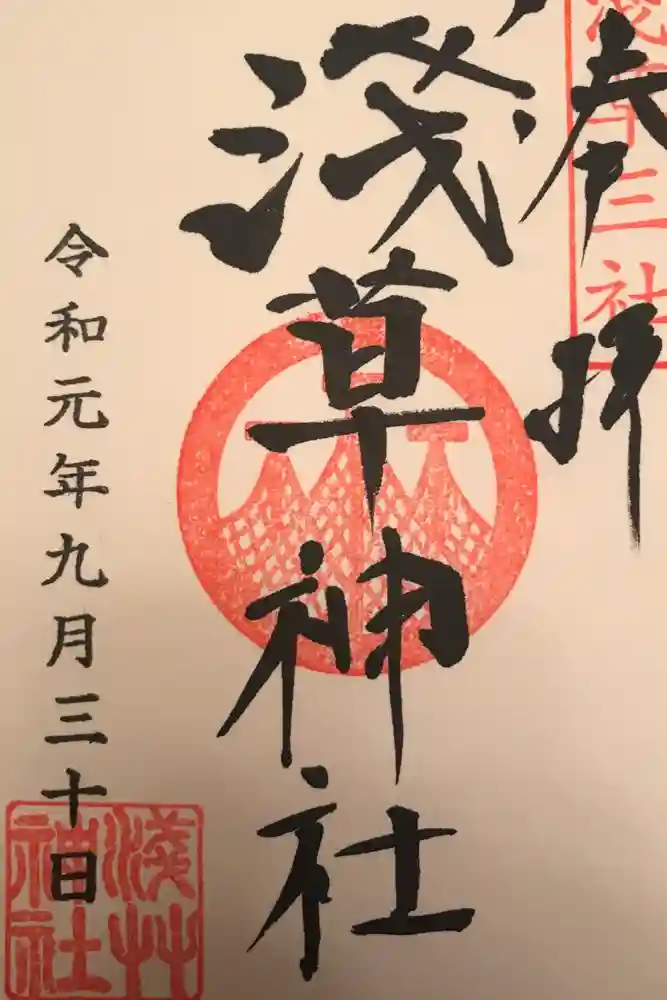 奉拝
浅草三社
淺草神社
令和元年九月三十日
淺艸
神社